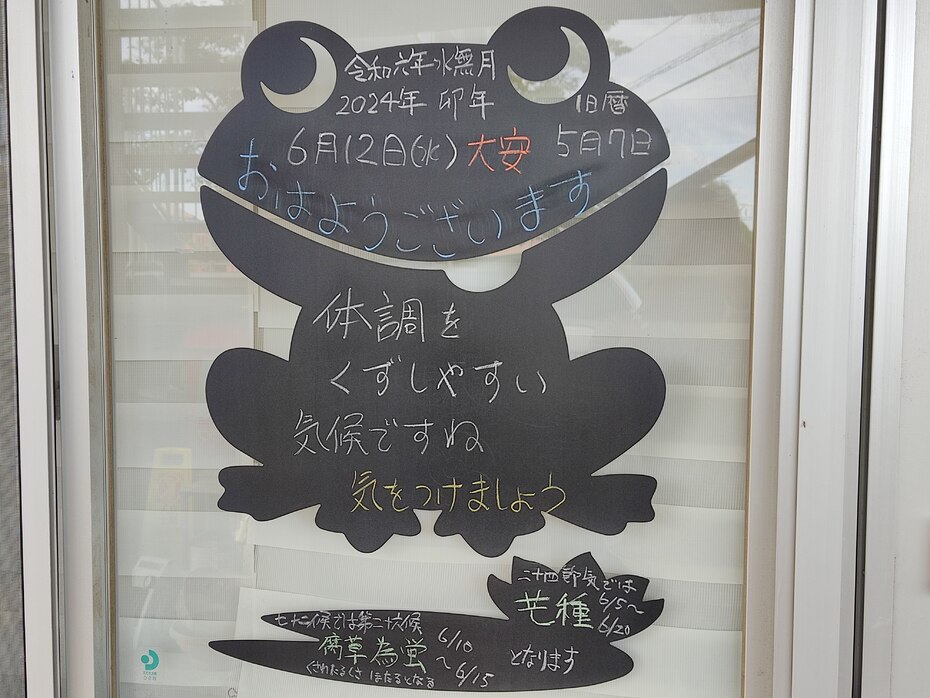 令和六年水無月
2024年 卯年 旧暦
6月12日(水)大安 5月7日
おはようございます
体調を
くずしやすい
気候ですね
気をつけましょう
二十四節気では
芒種 6/5〜
6/20
となります
七十二候では第二十六候
腐草為螢 6/10
〜6/15
くされたるくさ ほたるとなる